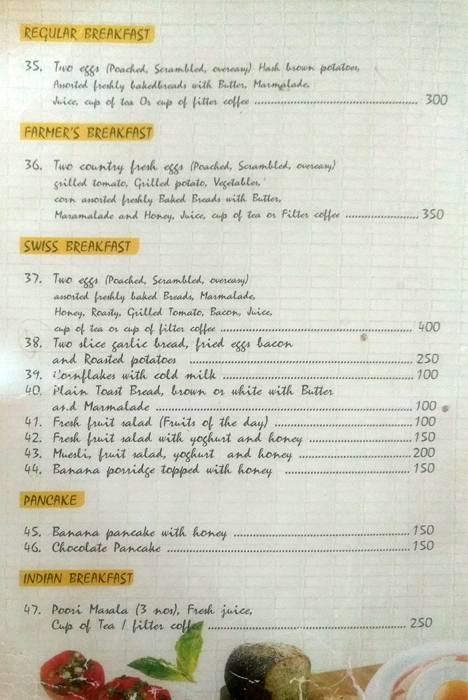 REGULAR BREAKFAST
35. Two eggs (Poached, Scrambled, overeasy) Hash brown potatoes,
Assorted freshly bakedbreads with Butter, Marmalade,
Juice, cup of tea Or cup of filter coffee 300
FARMER'S BREAKFAST
36. Two country fresh eggs (Poached, Scrambled, overeasy)
grilled tomato, Grilled potato, Vegetables,
corn assorted freshly Baked Breads with Butter,
Maramalade and Honey, Juice, cup of tea or Filter coffee 350
SWISS BREAKFAST
37. Two eggs (Poached, Scrambled, overeasy)
assorted freshly baked Breads, Marmalade,
Honey, Roasty, Grilled Tomato, Bacon, Juice,
cup of tea or cup of filter coffee 400
38. Two slice garlic bread, fried eggs bacon
and Roasted potatoes 250
39. Cornflakes with cold milk 100
40. Plain Toast Bread, brown or white with Butter
and Marmalade 100
41. Fresh fruit salad (Fruits of the day) 100
42. Fresh fruit salad with yoghurt and honey 150
43. Muesli, fruit salad, yoghurt and honey 200
44. Banana porridge topped with honey 150
PANCAKE
45. Banana pancake with honey 150
46. Chocolate Pancake 150
INDIAN BREAKFAST
47. Poori Masala (3 nos), Fresh juice,
Cup of Tea / filter coffee 250